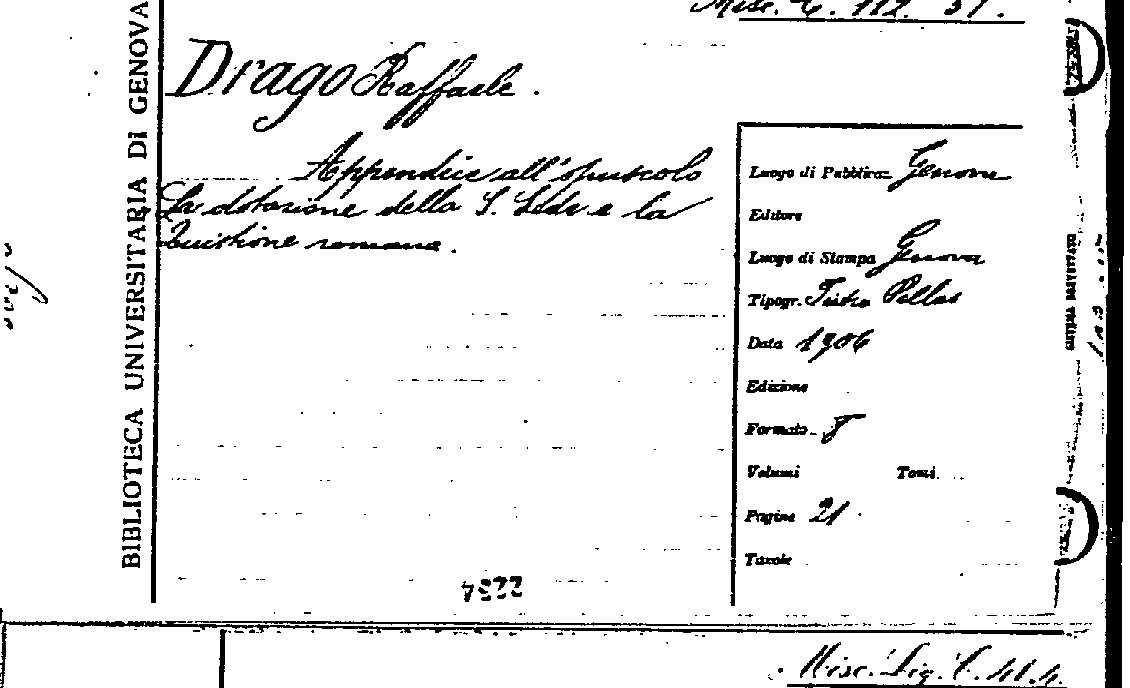 BIBLIOTECA UNIVERSITARIA DI GENOVA
Misc. C. 112. 31.
Drago Raffaele.
Appendice all'opuscolo
La dotazione della S. Sede e la
Quistione romana.
Luogo di Pubblicaz. Genova
Editore
Luogo di Stampa Genova
Tipogr. Pellas
Data 1906
Edizione
Formato 8
Volumi Tomi
Pagine 21
Tavole
Misc. Lig.